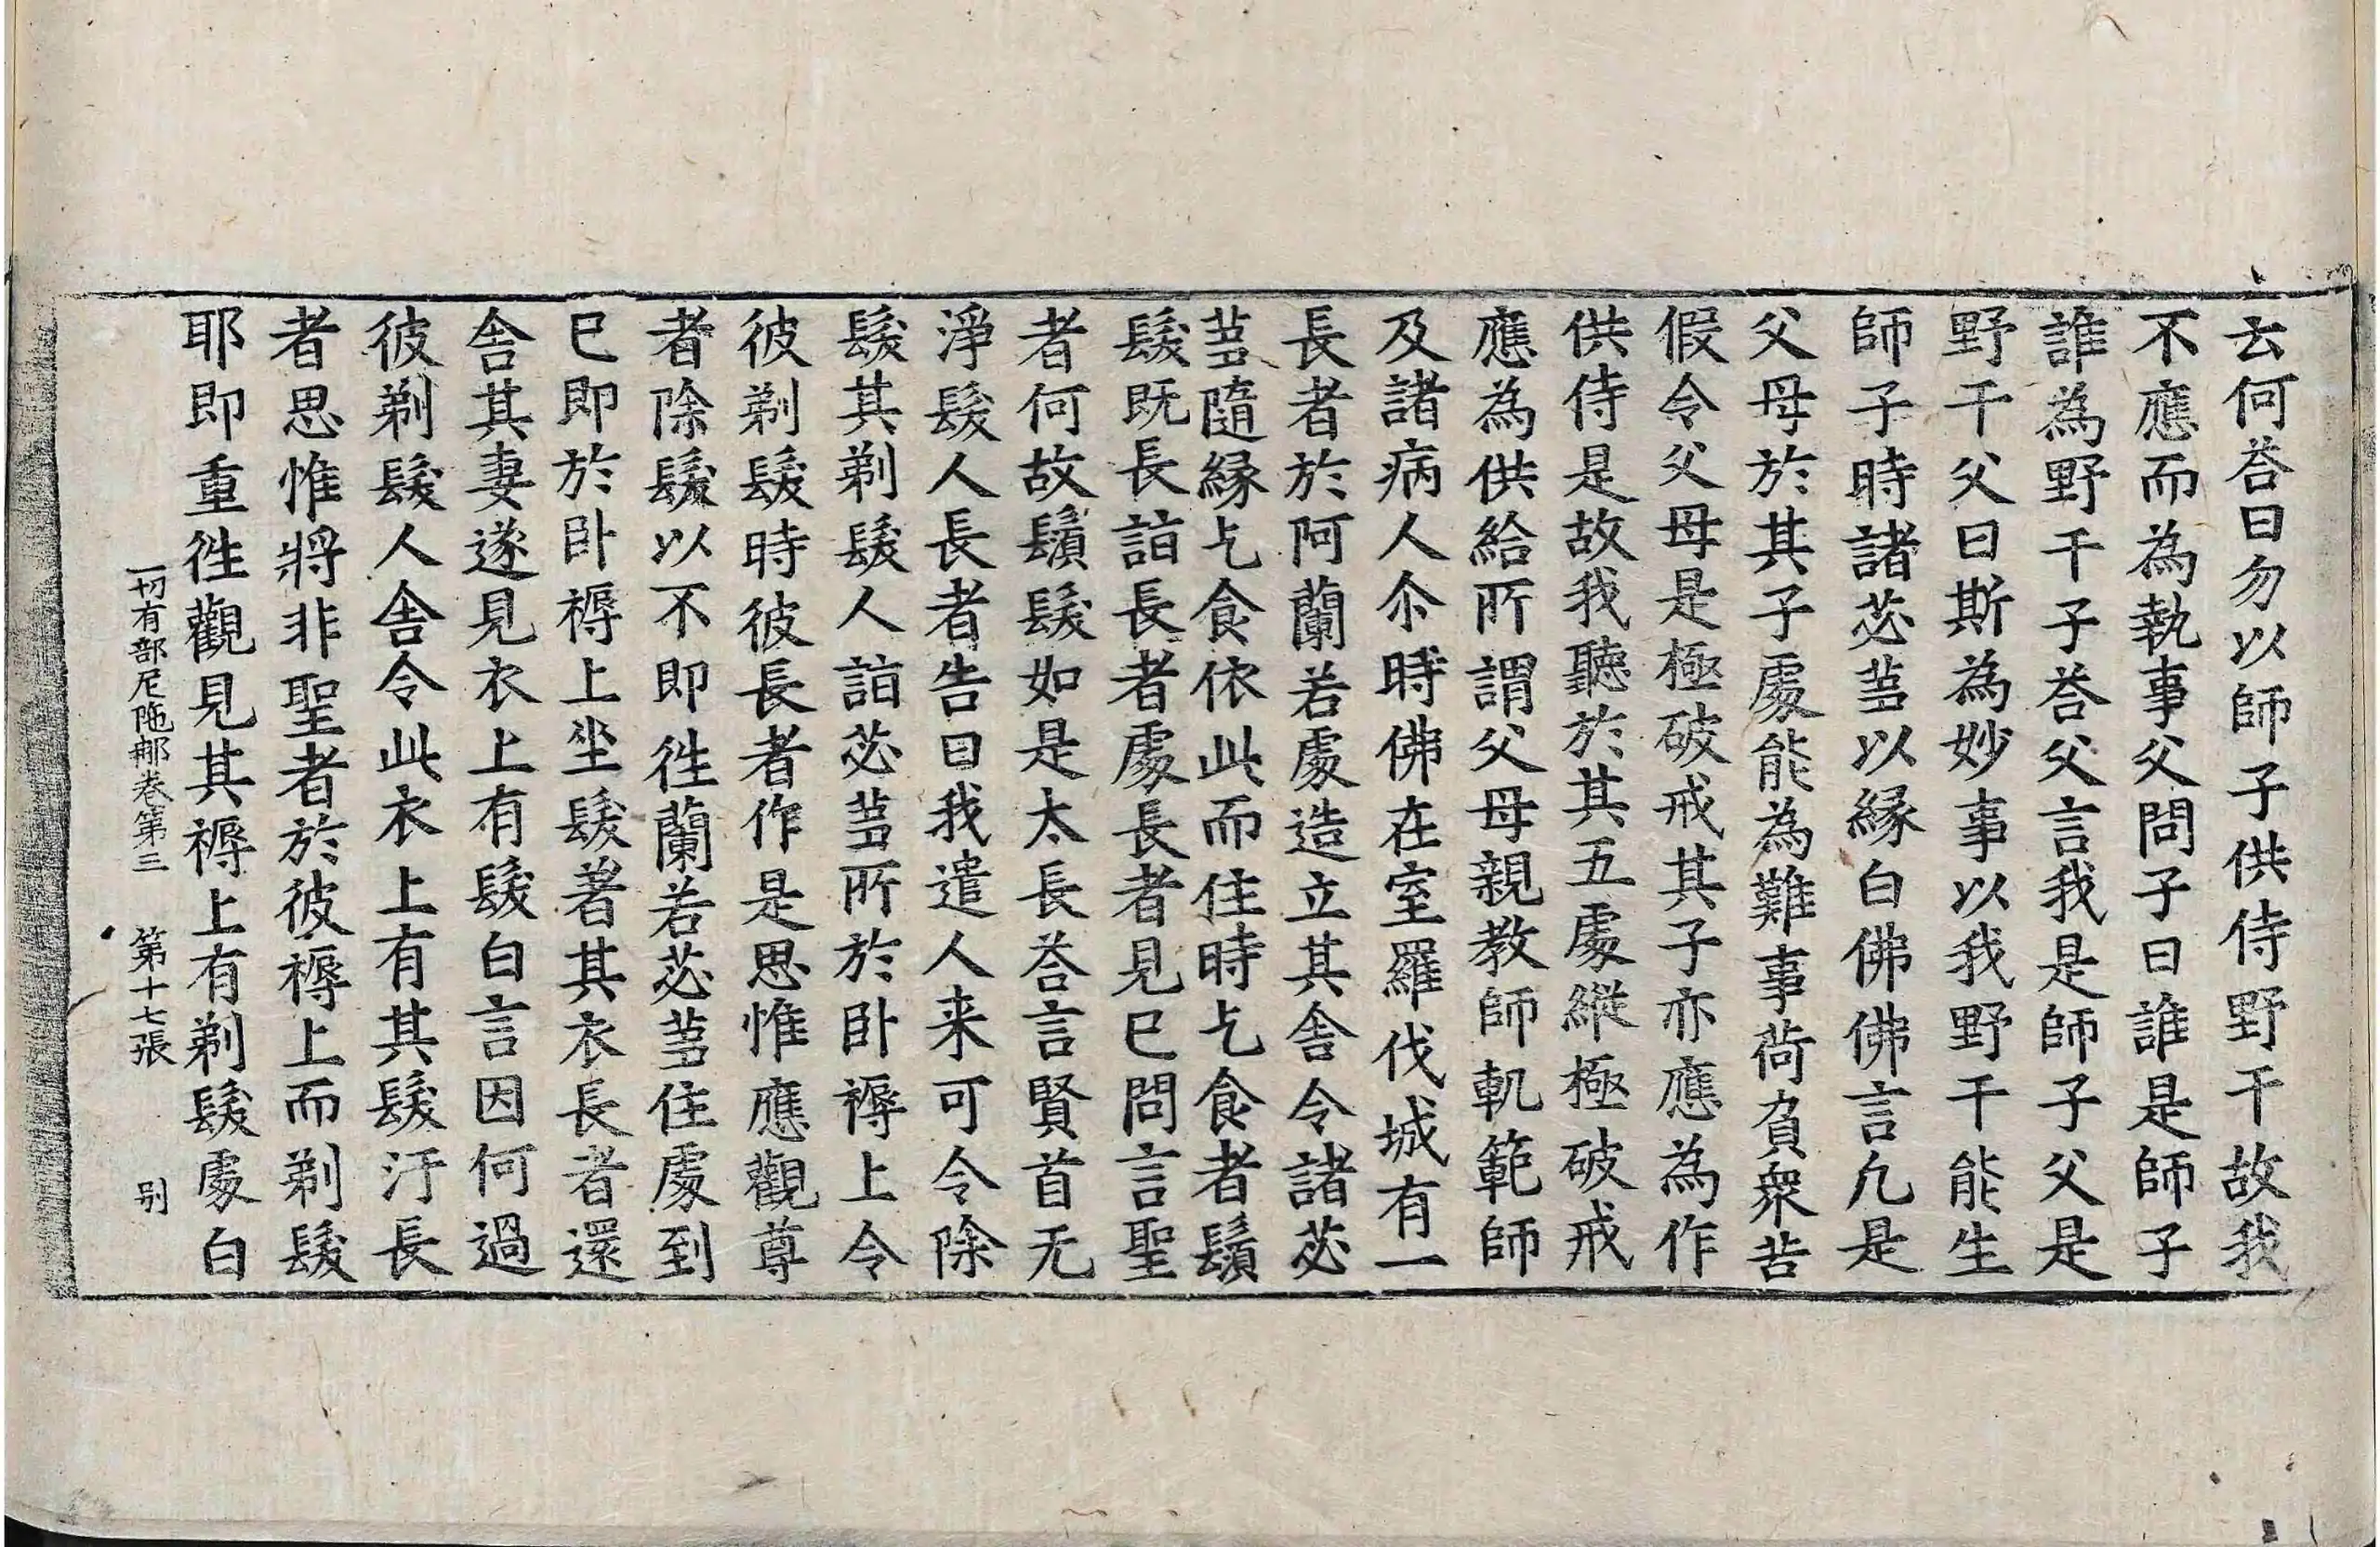 云何荅曰勿以師子供侍野干故我
不應而為執事父問子曰誰是師子
誰為野干子荅父言我是師子父是
野干父曰斯為妙事以我野干能生
師子時諸苾蒭以緣白佛佛言凢是
父母於其子處能為難事荷負衆苦
假令父母是極破戒其子亦應為作
供侍是故我聽於其五處縱極破戒
應為供給所謂父母親教師軌範師
及諸病人尒時佛在室羅伐城有一
長者於阿蘭若處造立其舍令諸苾
蒭隨緣乞食依此而住時乞食者鬚
髮既長詣長者處長者見已問言聖
者何故鬚髮如是太長荅言賢首无
淨髮人長者告曰我遣人来可令除
髮其剃髮人詣苾蒭所於卧褥上令
彼剃髮時彼長者作是思惟應觀尊
者除髮以不即徃蘭若苾蒭住處到
已即於卧褥上坐髮著其衣長者還
舍其妻遂見衣上有髮白言因何過
彼剃髮人舍令此衣上有其髮汙長
者思惟將非聖者於彼褥上而剃髮
耶即重徃觀見其褥上有剃髮處白
一切有部尼陁那卷第三 第十七張 别